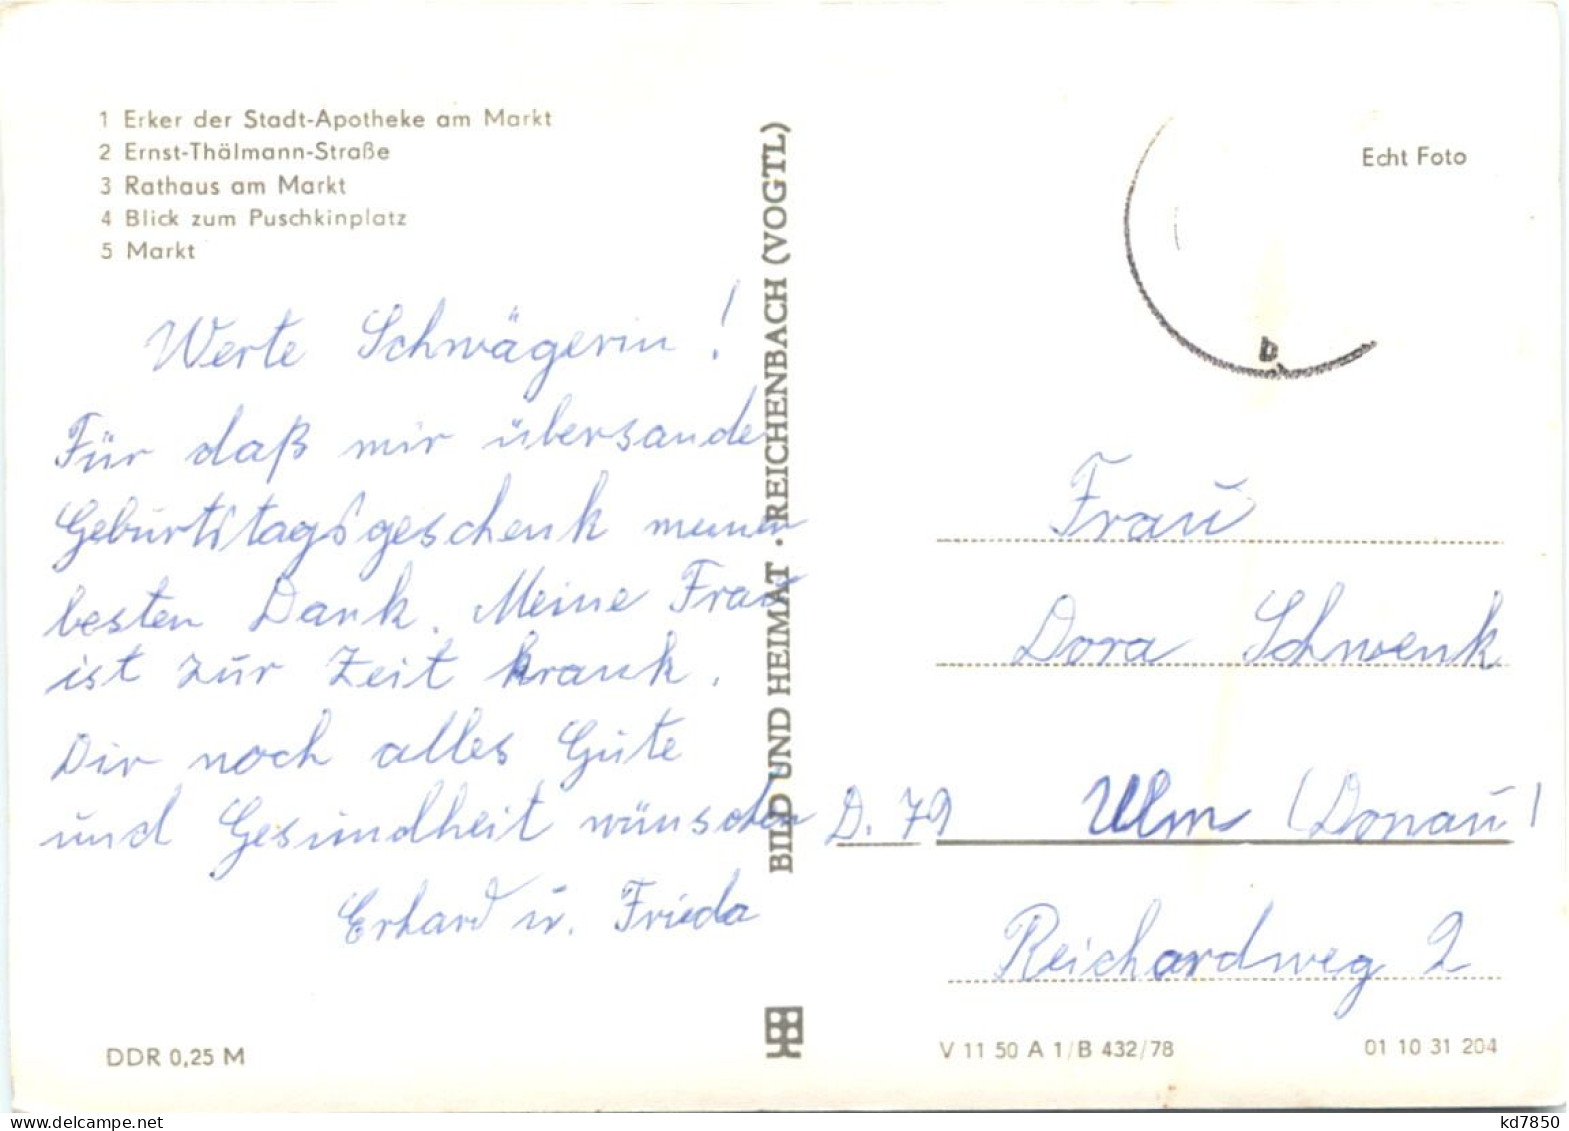 1 Erker der Stadt-Apotheke am Markt
2 Ernst-Thälmann-Straße
3 Rathaus am Markt
4 Blick zum Puschkinplatz
5 Markt
Werte Schwägerin!
Für daß mir übersande
Geburtstagsgeschenk meinen
besten Dank. Meine Frau
ist zur Zeit krank.
Dir noch alles Gute
und Gesundheit wünschen
Erhard u. Frieda
DDR 0,25 M
BILD UND HEIMAT · REICHENBACH (VOGTL)
Echt Foto
b
Frau
Dora Schwenk
D. 79 Ulm (Donau)
Reichardweg 2
V 11 50 A 1/B 432/78
01 10 31 204
kd7850
delcampe.net